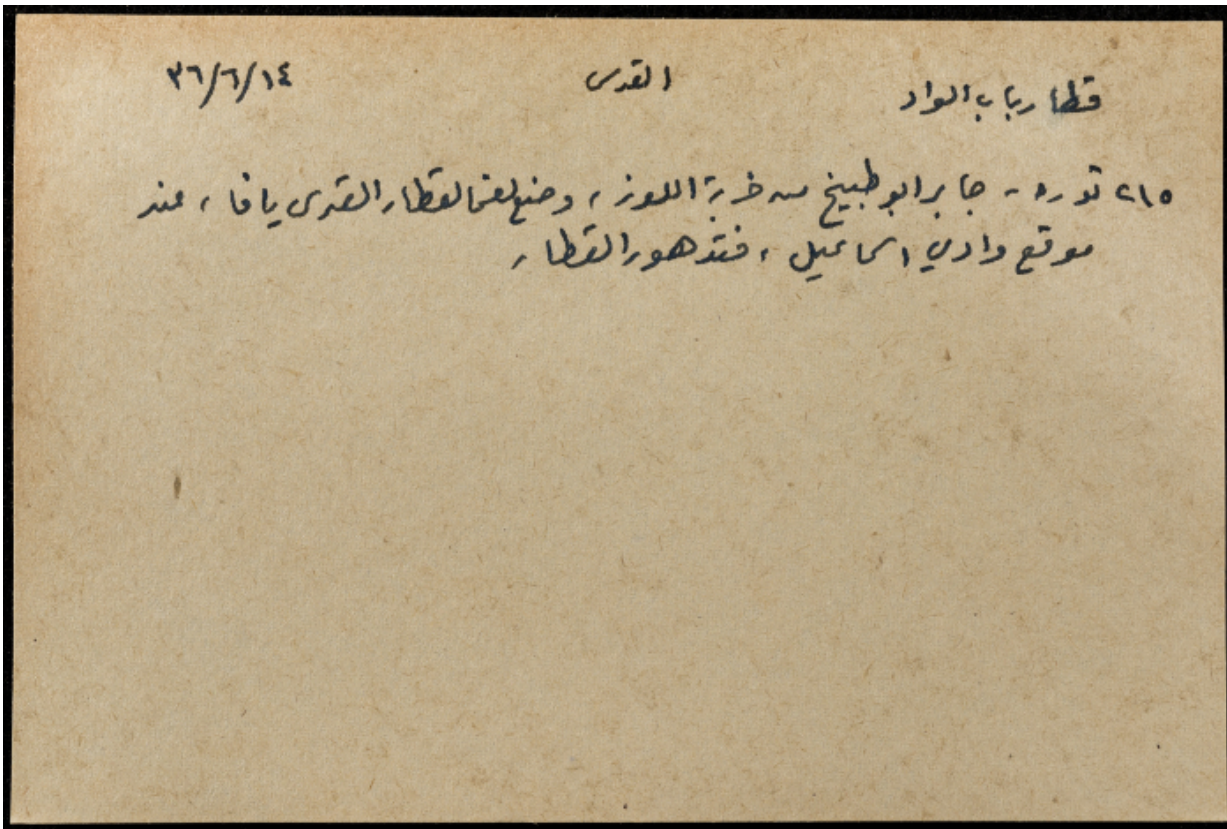 قطار باب الواد
القدس
٣٦/٦/١٤
٢١٥ ثوره - جابر ابو طبيخ من خربة اللوز، وضع لغما لقطار القدس يافا، عند
موقع وادي اسماعيل، فتدهور القطار